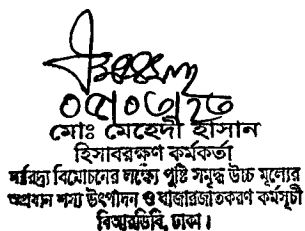 ০৫/০৩/২৩
মোঃ মেহেদী হাসান
হিসাবরক্ষণ কর্মকর্তা
দারিদ্র্য বিমোচনের লক্ষ্যে পুষ্টি সমৃদ্ধ উচ্চ মূল্যের
অপ্রধান শস্য উৎপাদন ও বাজারজাতকরণ কর্মসূচী
বিআরডিবি, ঢাকা।